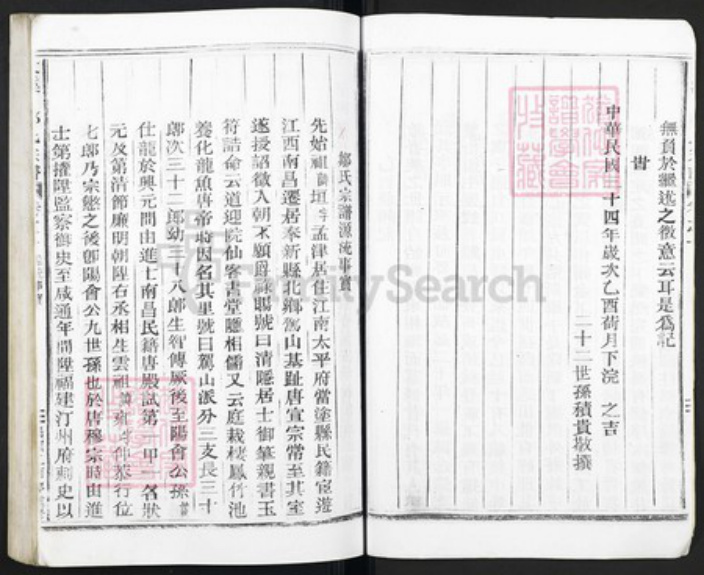 無負於繼述之微意云耳是爲記
旹
中華民國 十四年歲次乙酉荷月下浣 之吉
二十二世孫積貴敬撰
鄒氏宗譜源流事實
先始祖諱垣字孟津居住江南太平府當塗縣民籍宦遊
江西南昌遷居奉新縣北鄉駕山基趾唐宣宗常至其室
遂授詔徵入朝不願爵祿賜號曰清隱居士御筆親書玉
符誥命云道迎院仙客書堂聽相儒又云庭栽棲鳳竹池
養化龍魚唐帝時因名其里號曰駕山派分三支長三十
郎次三十二郎幼三十八郎生智傳厥後至陽會公孫
仕龍於興元間由進士南昌民籍唐殿試第一甲一名狀
元及第清節廉明朝陞右丞相生雲祖諱雍字仲漦行位
七郎乃宗懲之後卽陽會公九世孫也於唐穆宗時由進
士第擢陞監察御史至咸通年間陞福建汀州府刺史以
FamilySearch